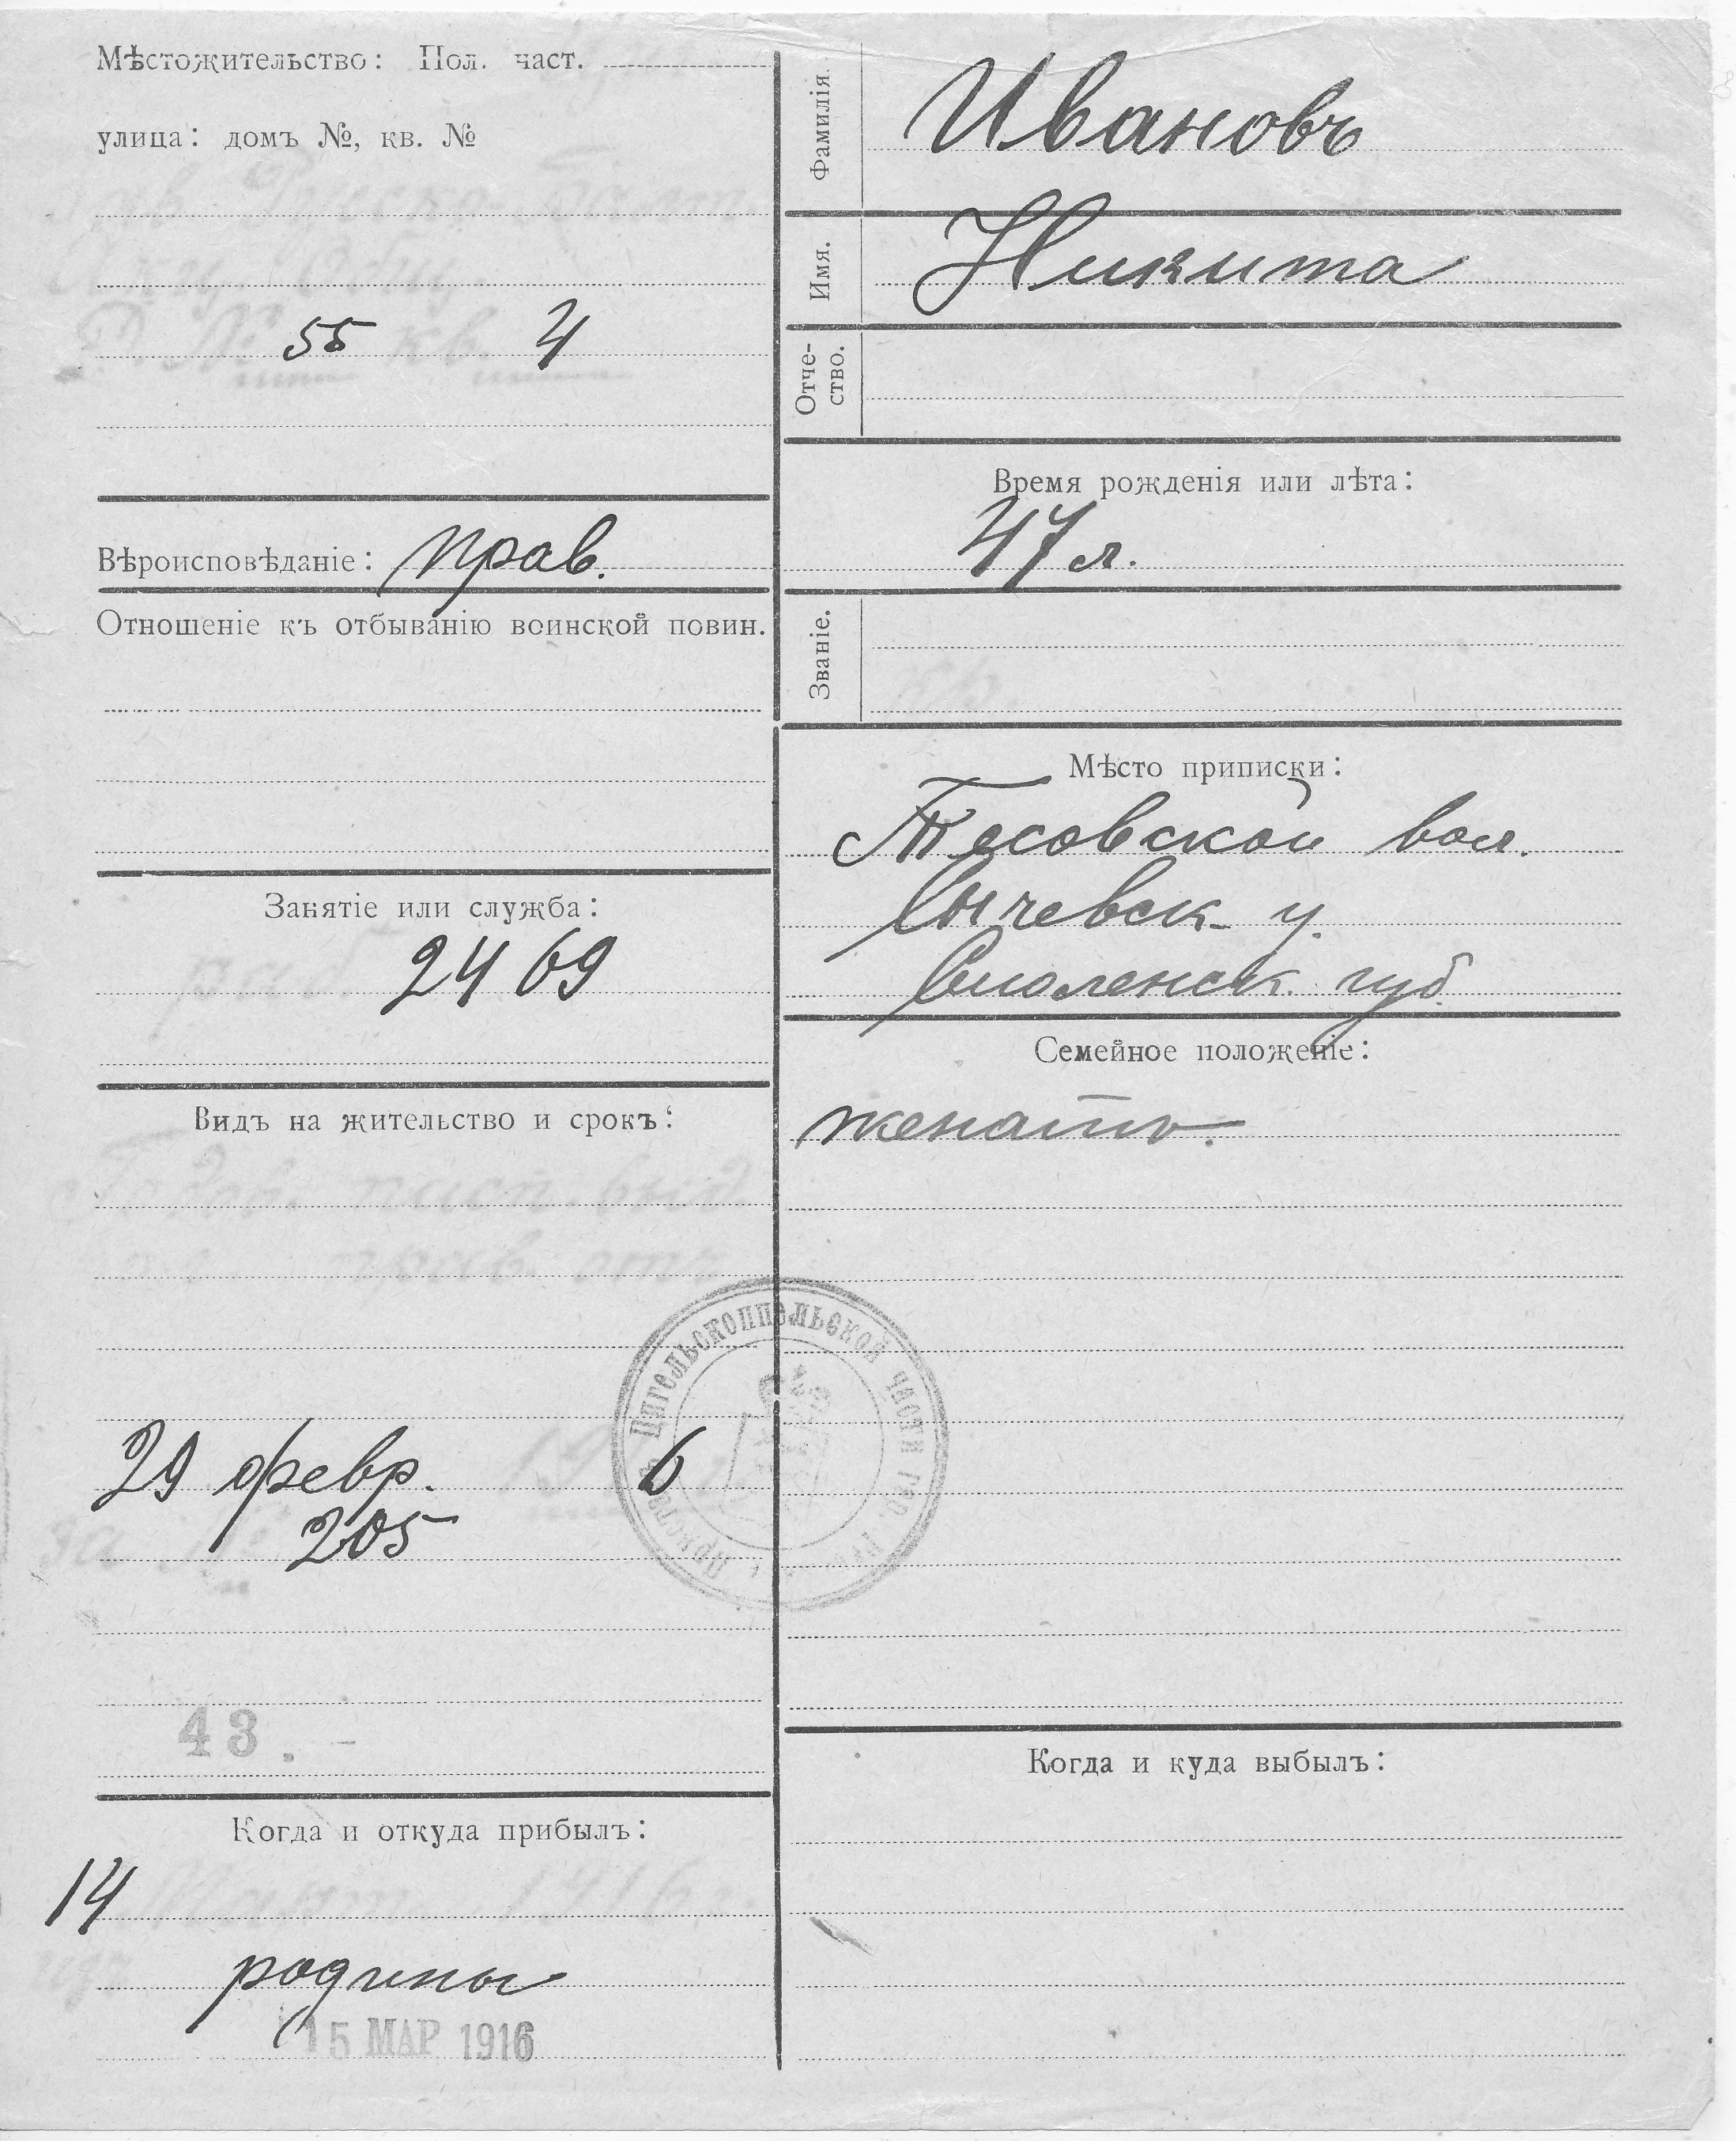 Мѣстожительство: Пол. част.
улица: домъ №, кв. №
Д. № 55 кв. 4
Вѣроисповѣданіе: прав.
Отношеніе къ отбыванію воинской повин.
Занятіе или служба:
2469
Видъ на жительство и срокъ:
паст. вид
прав. отъ
29 февр. 191 6
за № 205
43.
Когда и откуда прибылъ:
14 Марта 1916 г.
изъ родины
15 МАР 1916
Фамилія.
Ивановъ
Имя.
Никита
Отче-
ство.
Время рожденія или лѣта:
47 л.
Званіе.
кр.
Мѣсто приписки:
Тесовской вол.
Сычевск. у.
Смоленск. губ.
Семейное положеніе:
женатъ.
Когда и куда выбылъ:
Приставъ Цигельскоппельской части гор.